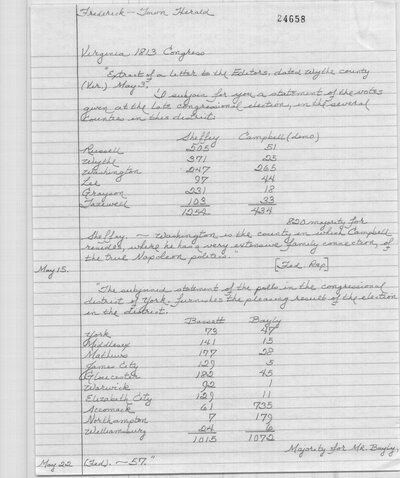 Frederick-Town Herald
24658
Virginia 1813 Congress
"Extract of a letter to the Editors, dated Wythe county
(Ver.) May 3,
"I subjoin for you a statement of the votes
given at the late congressional election, in the several
counties in this district.
Sheffey Campbell (demo)
Russell 505 51
Wythe 371 25
Washington 247 265
Lee 97 44
Grayson 231 18
Tazewell 103 33
1254 434
820 majority for
Sheffey. ~ Washington is the county in which Campbell
resides, where he has a very extensive family connection, of
the true Napoleon politics."
[Fed. Rep]
May 15.
"The subjoined statement of the polls in the congressional
district of York, furnishes the pleasing result of the election
in the district.
Bassett Bayly
York 73 47
Middlesex 141 15
Mathews 177 28
James City 129 5
Gloucester 182 45
Warwick 92 1
Elizabeth City 129 11
Accomack 61 735
Northampton 7 179
Williamsburg 24 6
1015 1072
Majority for Mr. Bayly,
May 22 (Fed). ~57."